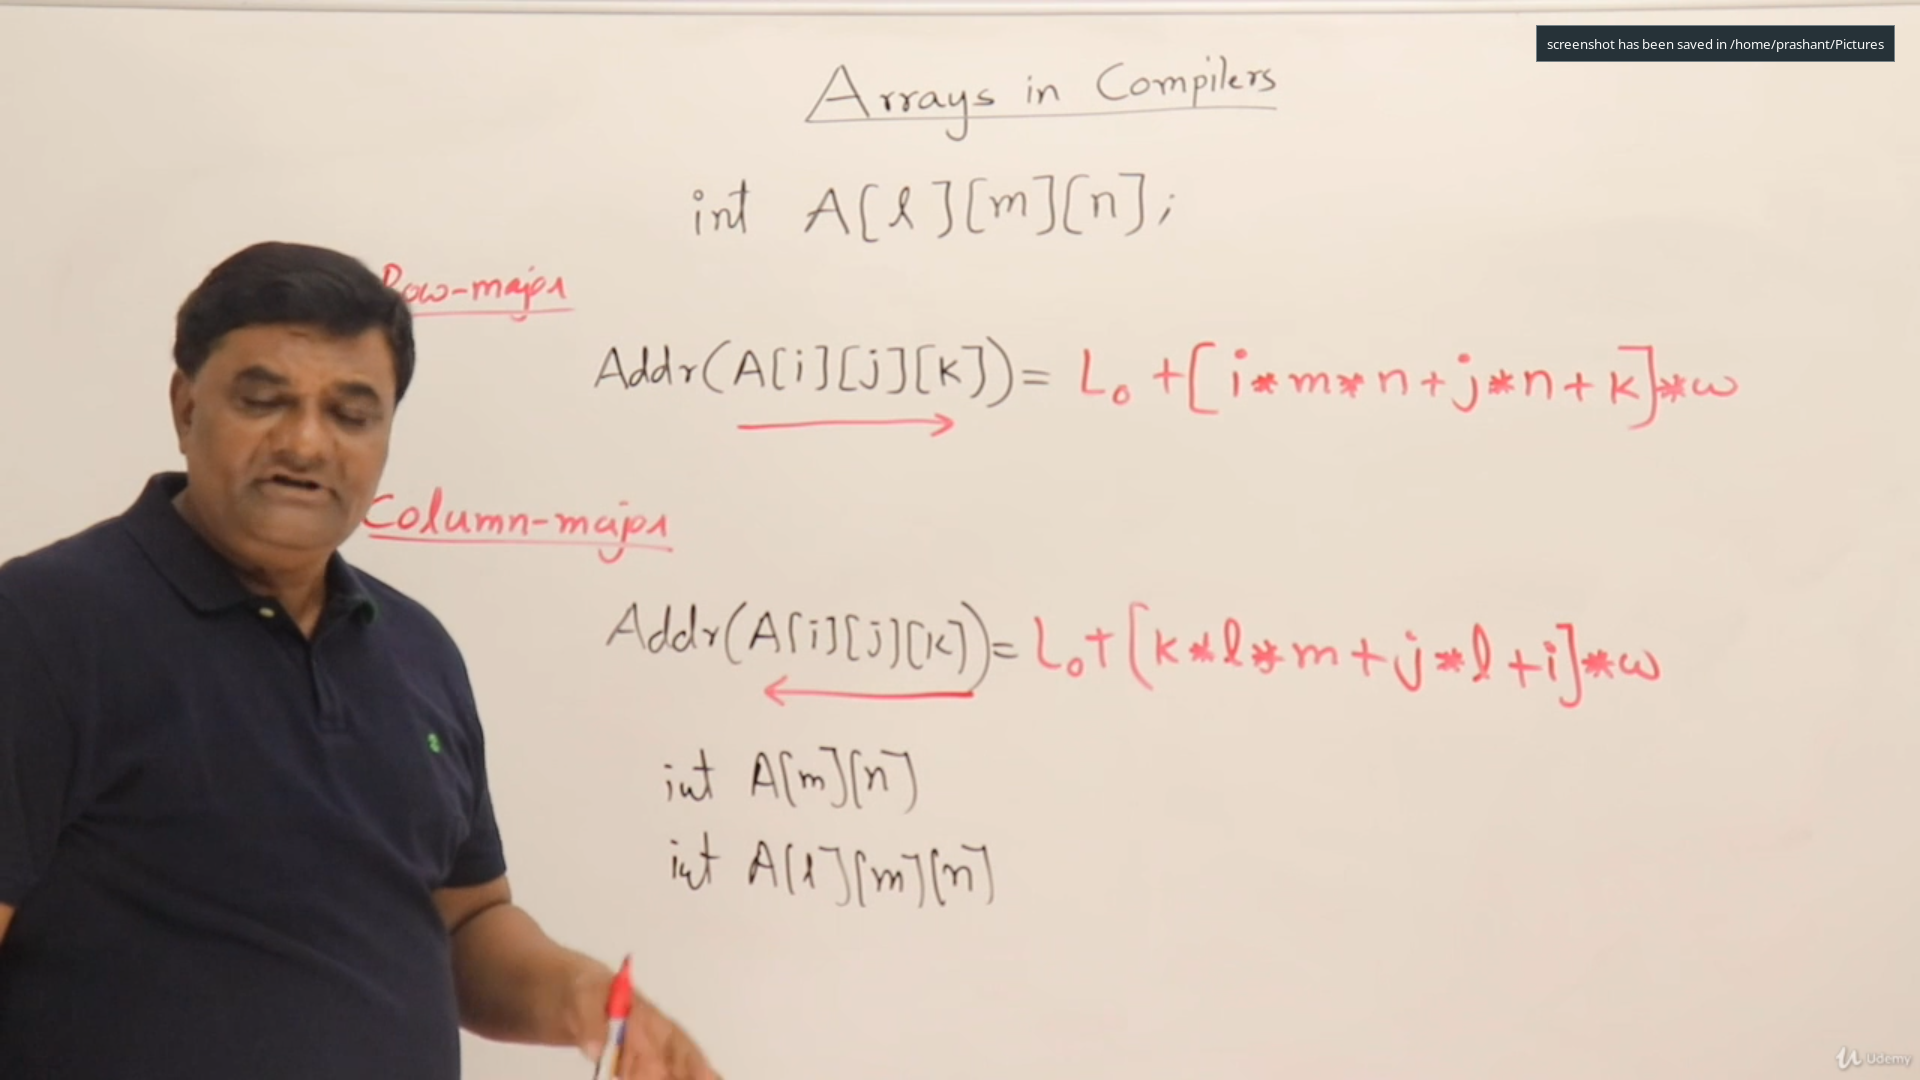 screenshot has been saved in /home/prashant/Pictures
Arrays in Compilers
int A[l][m][n];
Row-major
Addr(A[i][j][k]) = L₀ + [i*m*n + j*n + k]*w
Column-major
Addr(A[i][j][k]) = L₀ + [k*l*m + j*l + i]*w
int A[m][n]
int A[l][m][n]
Udemy